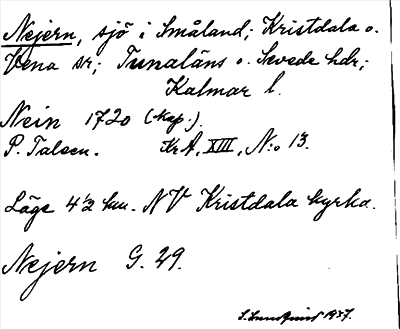 Nejern, sjö i Småland; Kristdala o.
Vena sn; Tunaläns o. Sevede hdr;
Kalmar l.
Nein 1720 (kop.).
P. Taleen. KrA, XIII, N:o 13.
Läge 4½ km. NV Kristdala kyrka.
Nejern G. 29.
S. Lundquist 1937.